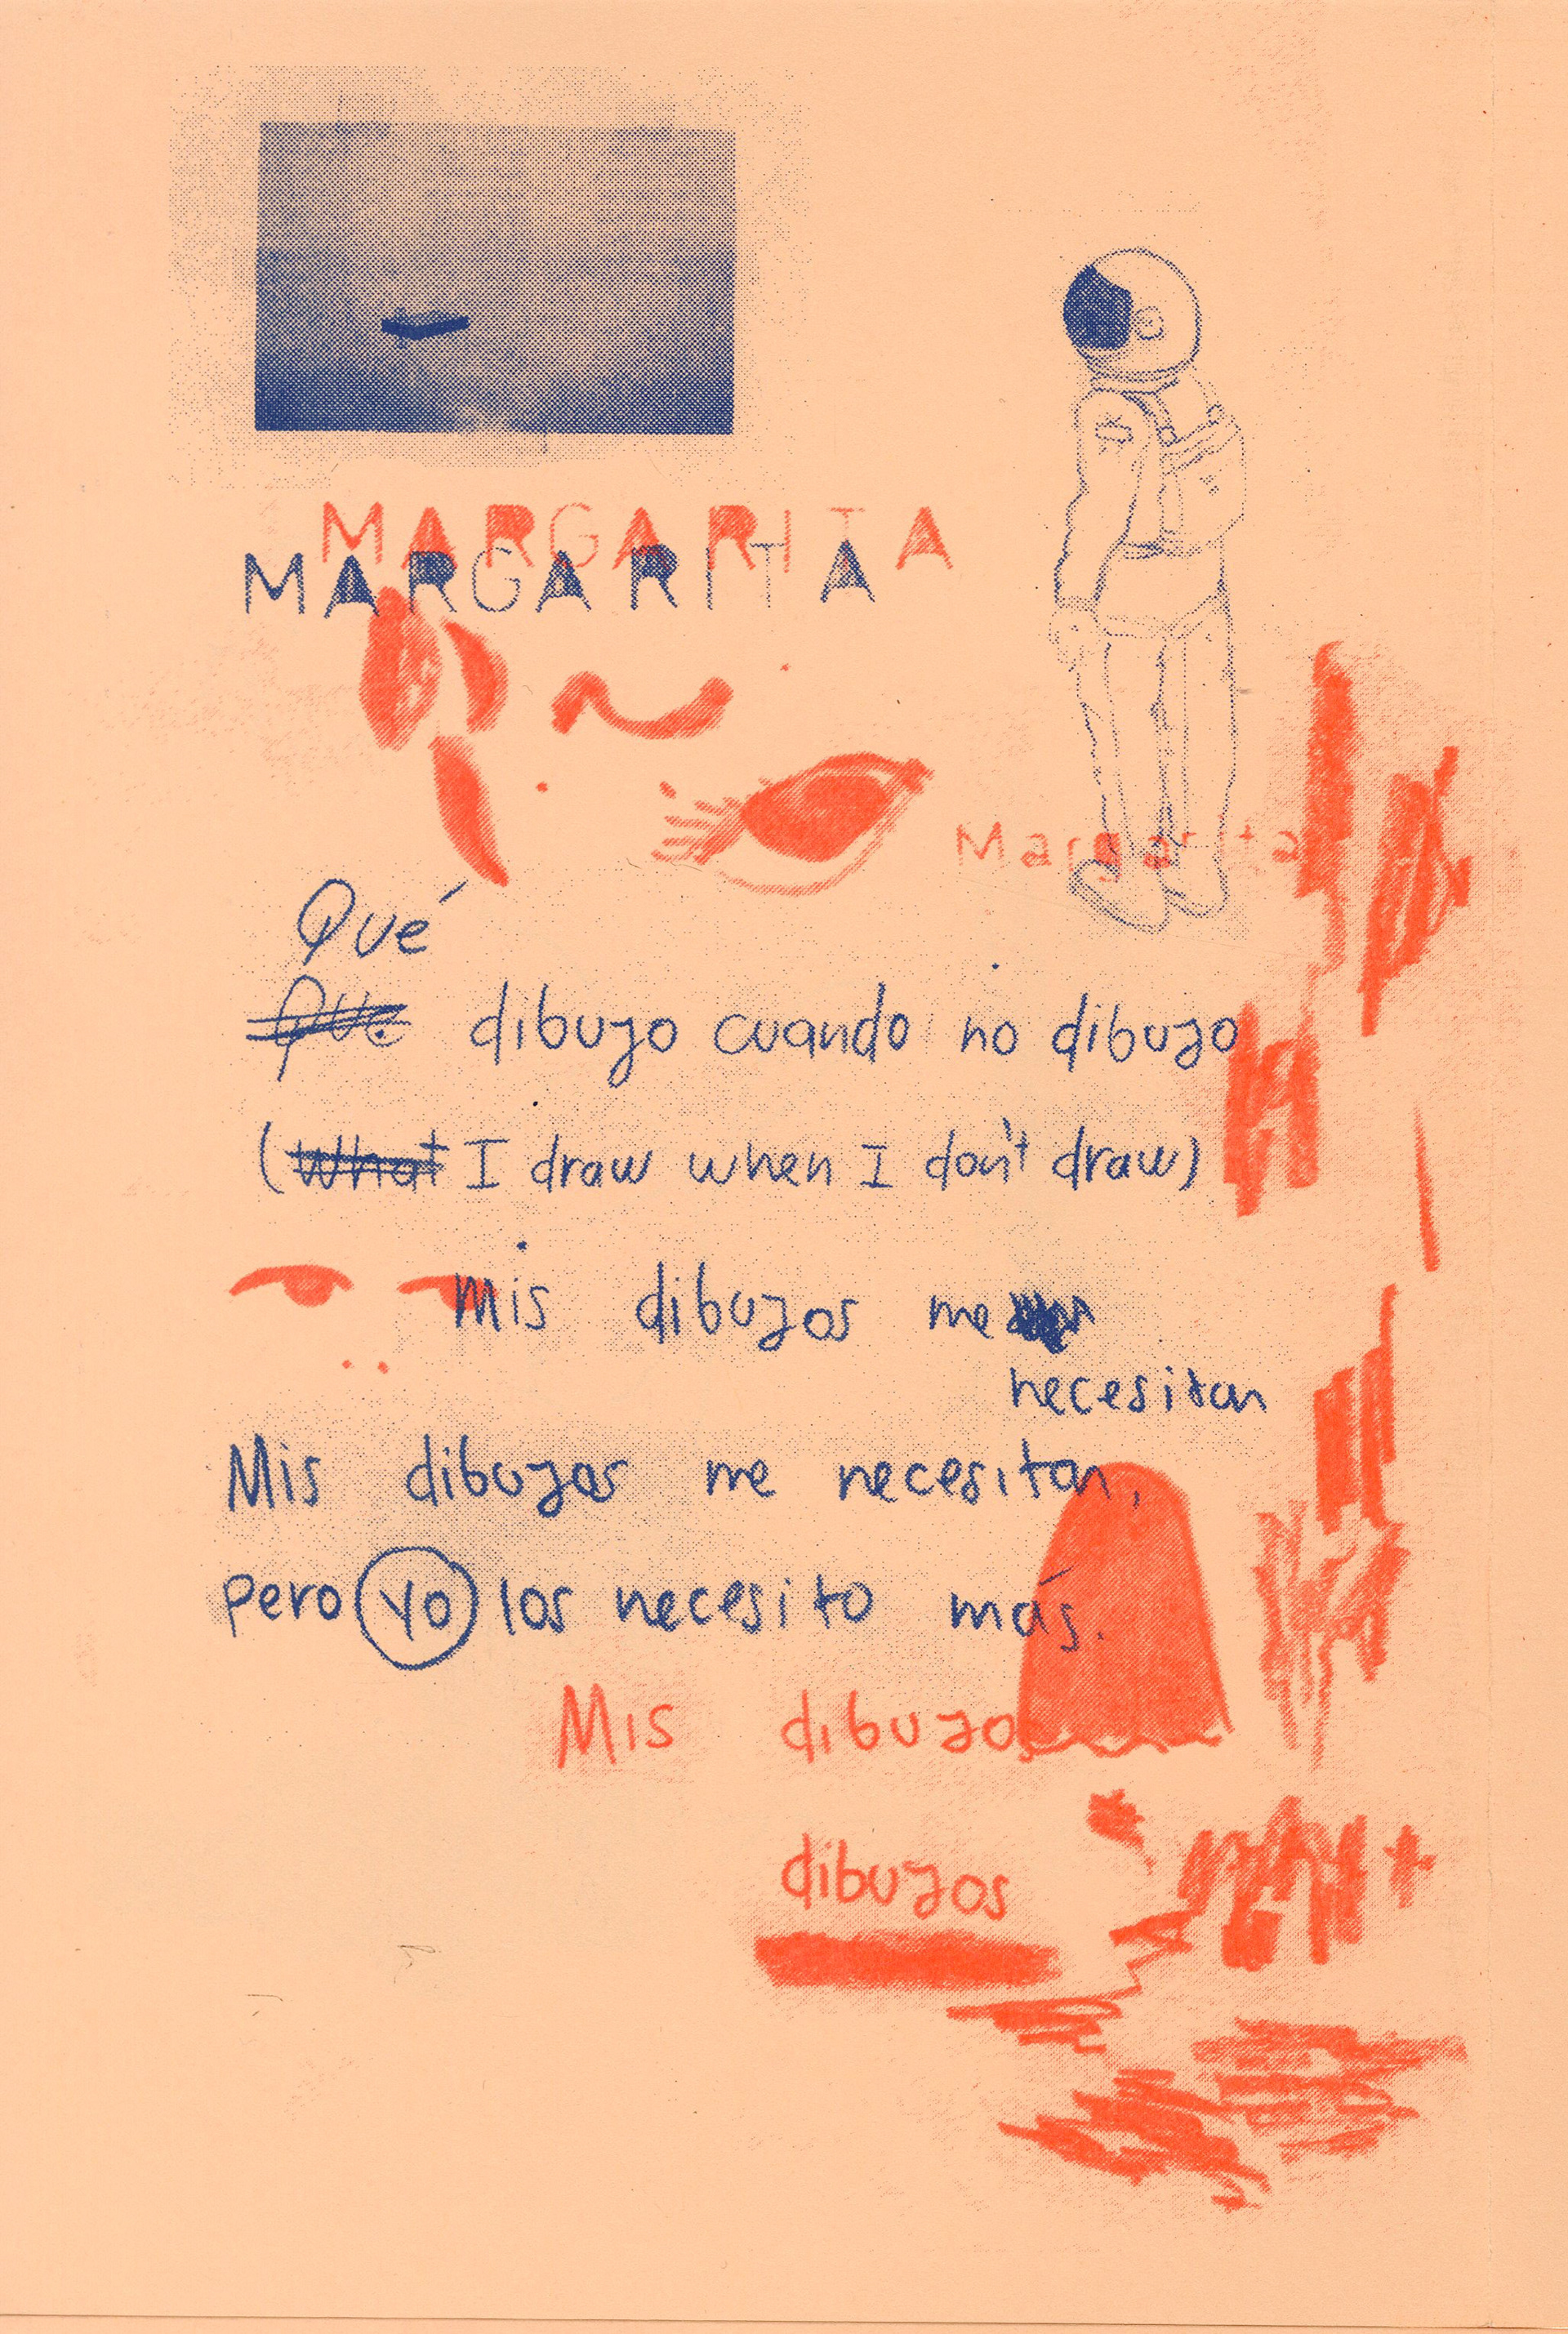 MARGARITA
MARGARITA
Margarita
Qué
Que dibujo cuando no dibujo
(What I draw when I don't draw)
Mis dibujos me
necesitan
Mis dibujos me necesitan,
pero yo los necesito más.
Mis dibujos
dibujos